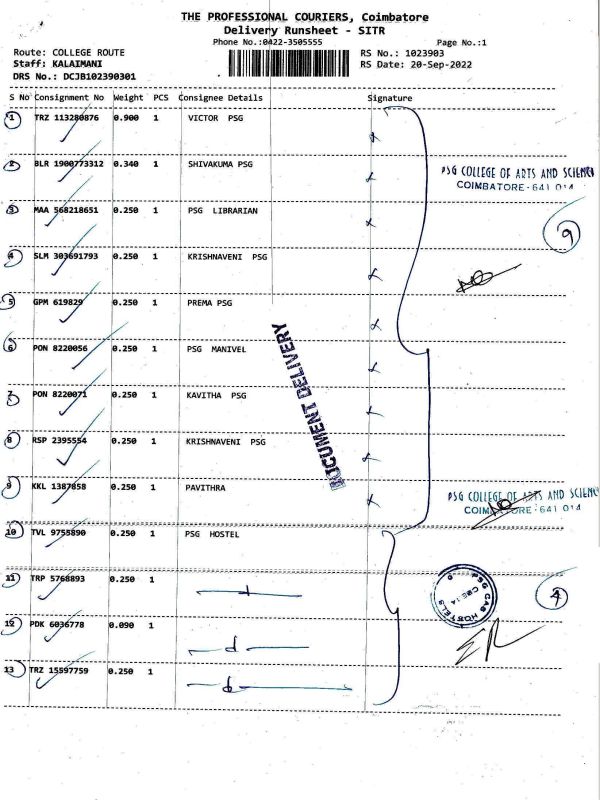 THE PROFESSIONAL COURIERS, Coimbatore
Delivery Runsheet - SITR
Phone No.:0422-3505555 Page No.:1
Route: COLLEGE ROUTE RS No.: 1023903
Staff: KALAIMANI RS Date: 20-Sep-2022
DRS No.: DCJB102390301
S No Consignment No Weight PCS Consignee Details Signature
1 TRZ 113280876 0.900 1 VICTOR PSG
2 BLR 1900773312 0.340 1 SHIVAKUMA PSG
PSG COLLEGE OF ARTS AND SCIENCE
COIMBATORE - 641 014
3 MAA 568218651 0.250 1 PSG LIBRARIAN
9
4 SLM 303691793 0.250 1 KRISHNAVENI PSG
5 GPM 619829 0.250 1 PREMA PSG
6 PON 8220056 0.250 1 PSG MANIVEL
DOCUMENT DELIVERY
7 PON 8220071 0.250 1 KAVITHA PSG
8 RSP 2395554 0.250 1 KRISHNAVENI PSG
9 KKL 1387858 0.250 1 PAVITHRA
PSG COLLEGE OF ARTS AND SCIENC
COIMBATORE - 641 014
10 TVL 9755890 0.250 1 PSG HOSTEL
11 TRP 5768893 0.250 1
PSG CAS HOSTELS
CBE-14
4
12 PDK 6036778 0.090 1
13 TRZ 15597759 0.250 1